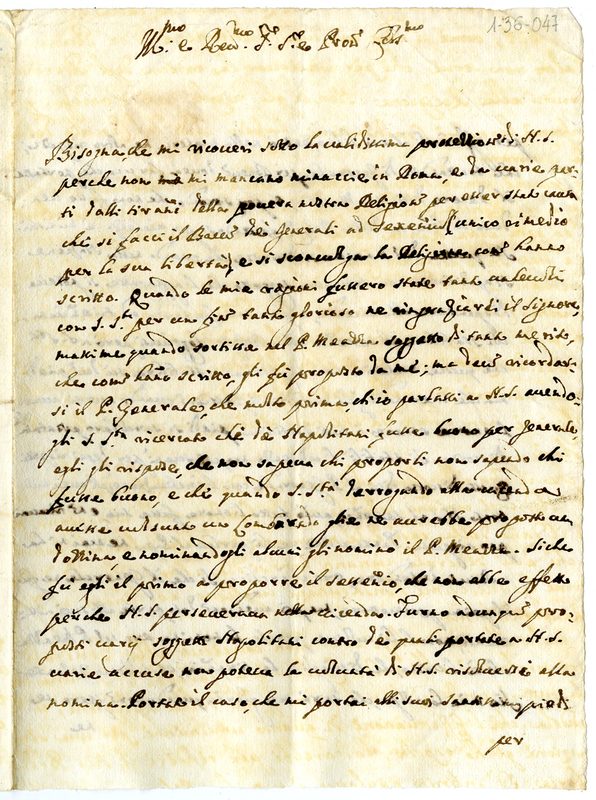 1-36-047
Ill.mo e Rev.mo Sig.r Sig.r e Pron Col.mo
Bisogna, che mi ricoveri sotto la validissima protettione di N.S.
perche non mi mancano minaccie in Roma, e da varie par-
ti dalli tiranni della povera nostra Religione, per esser stato causa
che si facci il Breve dei Generali ad sexennium (unico rimedio
per la sua libertà) e si sconvolga la Religione come hanno
scritto. Quando le mie ragioni fussero state tanto valevoli
con S. S.tà per un fine tanto glorioso ne ringratiarei il Signore,
massime quando sortisse nel P. soggetto di tanto merito,
che come hanno scritto, gli fù proposto da me; ma deve ricordar-
si il P. Generale, che molto prima, ch'io parlassi a N.S. avendo-
gli S. S.tà ricercato che de Napolitani fusse buono per Generale,
egli gli rispose, che non sapeva chi proporli non sapendo chi
fusse buono, e che quando S. Stà derrogando alla vicenda
avesse voluto uno Lombardo glie ne averebbe proposto una
dozzina, e nominandogli alcuni gli nominò il P. Siche
fù egli il primo a proporre il sessennio, che non ebbe effetto
perche N.S. perseverava nella vicenda. Furno adunque pro-
posti varij soggetti Napolitani contro de quali portate a N.S.
varie accuse non poteva la volontà di N.S. risolversi alla
nomina. Portò il caso, che mi portai alli suoi Santissimi piedi
per